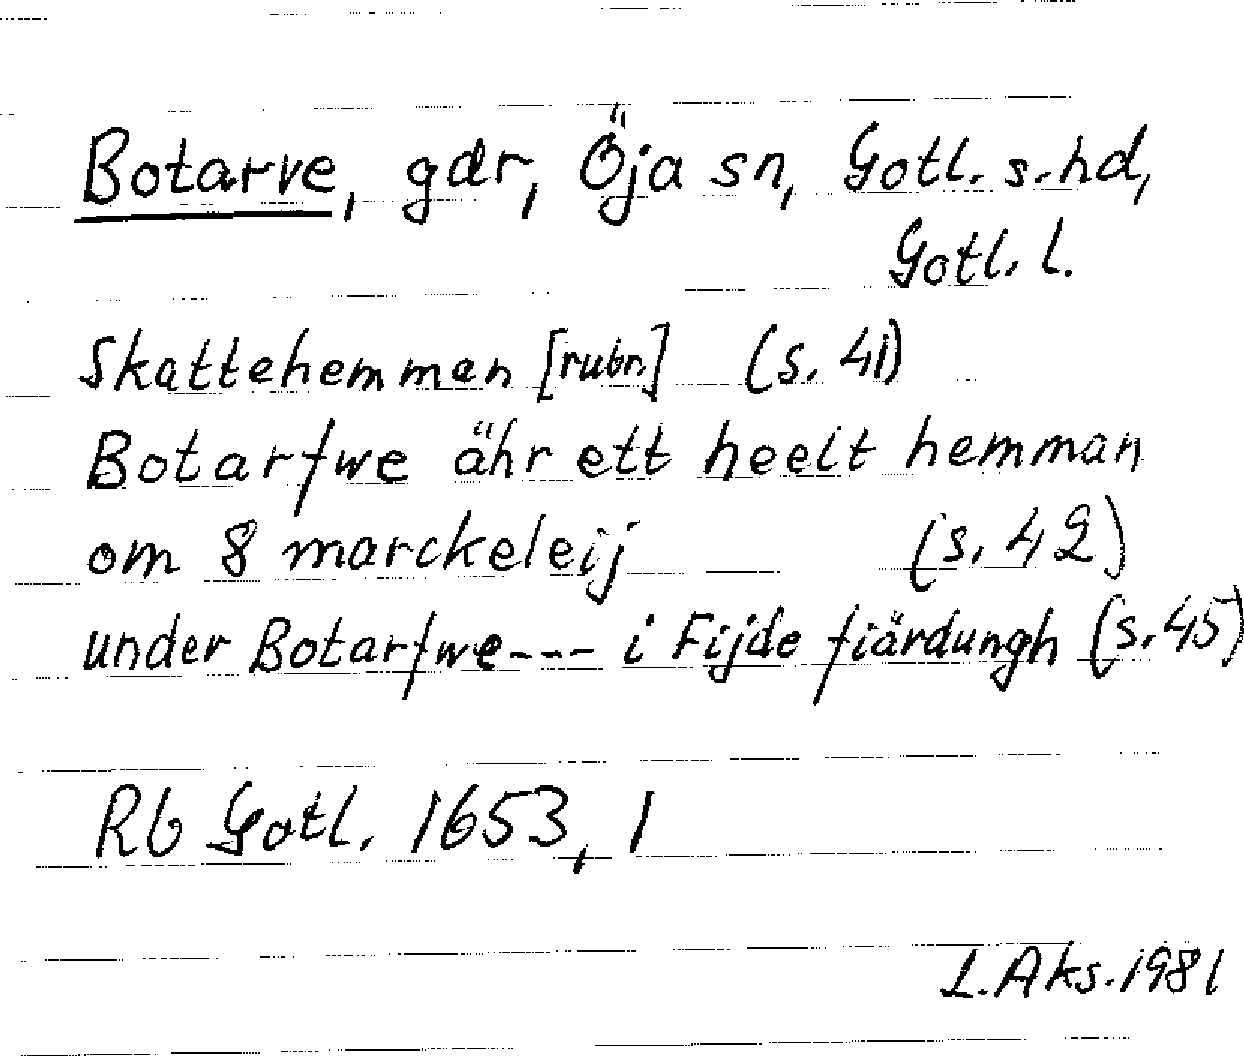 Botarve, gdr, Öja sn, Gotl. s. hd,
Gotl. l.
Skattehemman [rubr.] (s. 41)
Botarfwe ähr ett heelt hemman
om 8 marckeleij (s. 42)
under Botarfwe--- i Fijde fiärdungh (s. 45)
Rb Gotl. 1653, 1
L. Aks. 1981